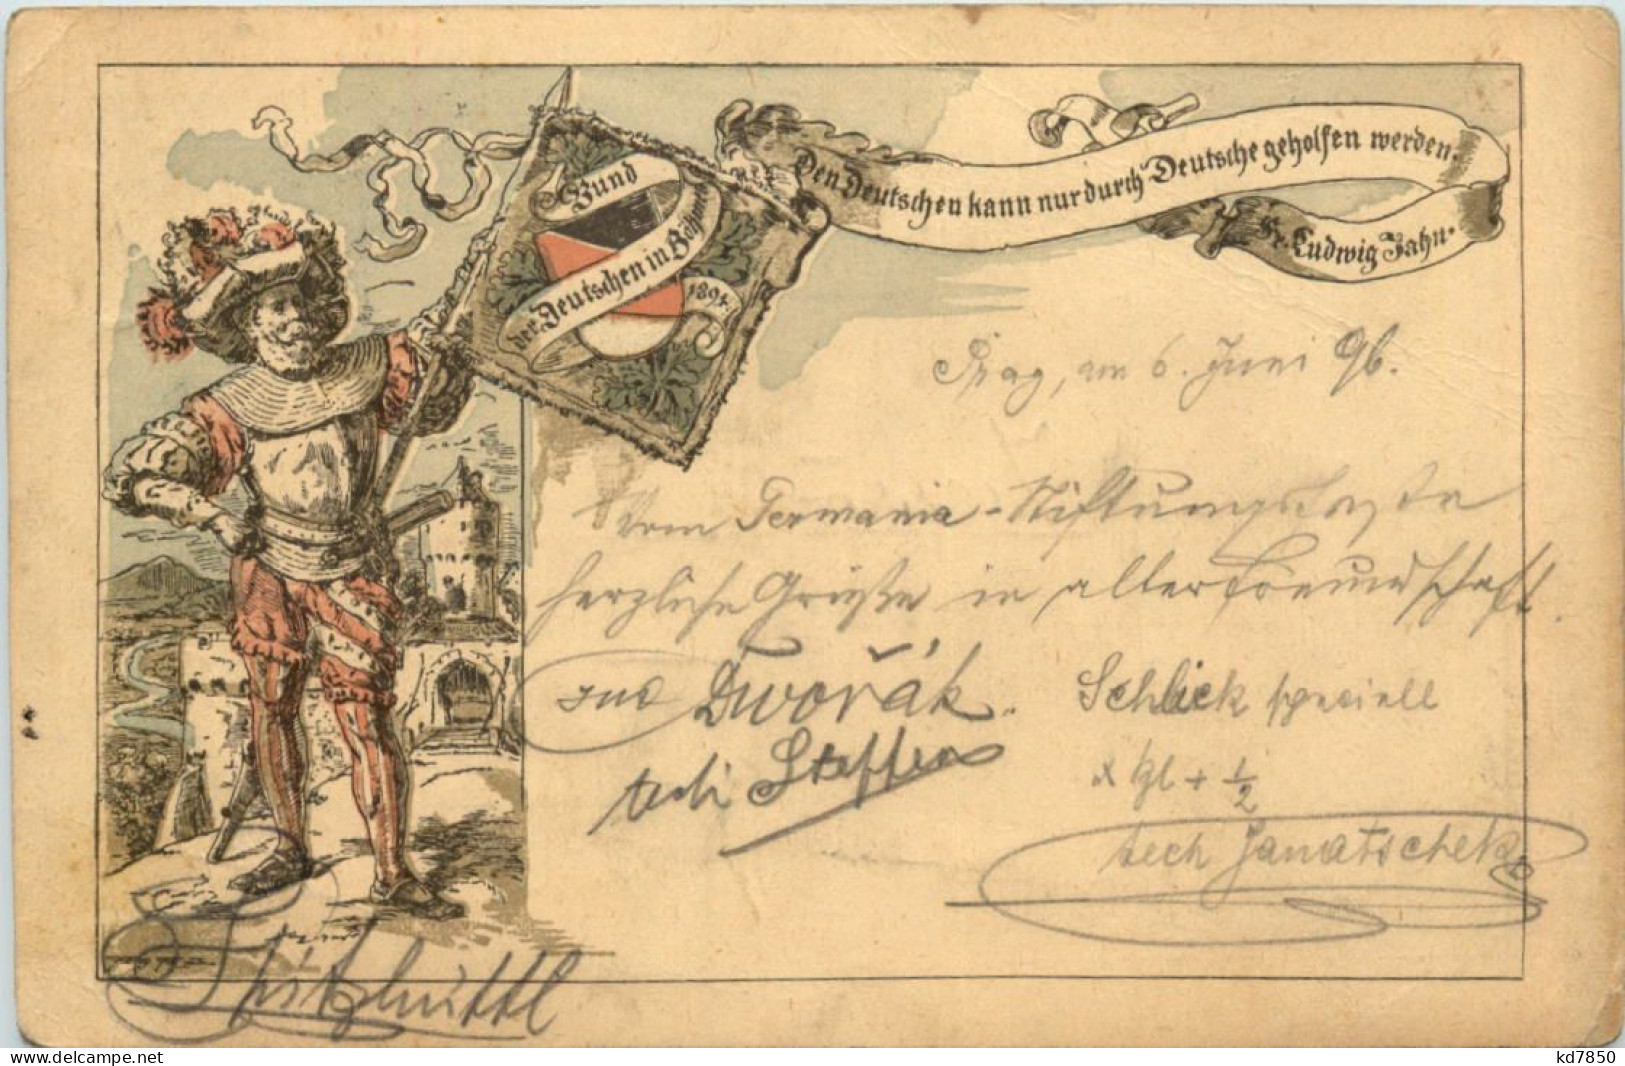 Bund
der Deutschen in Böhmen
1894.
Den Deutschen kann nur durch Deutsche geholfen werden.
Fr. Ludwig Jahn.
Prag, am 6. Juni 96.
Vom Germania-Stiftungsfeste
herzliche Grüße in alter Freundschaft.
Dwořák.
Schlick speciell
Steffen
+ 1/2
tech Janatschek
Spitzhüttl
www.delcampe.net
kd7850